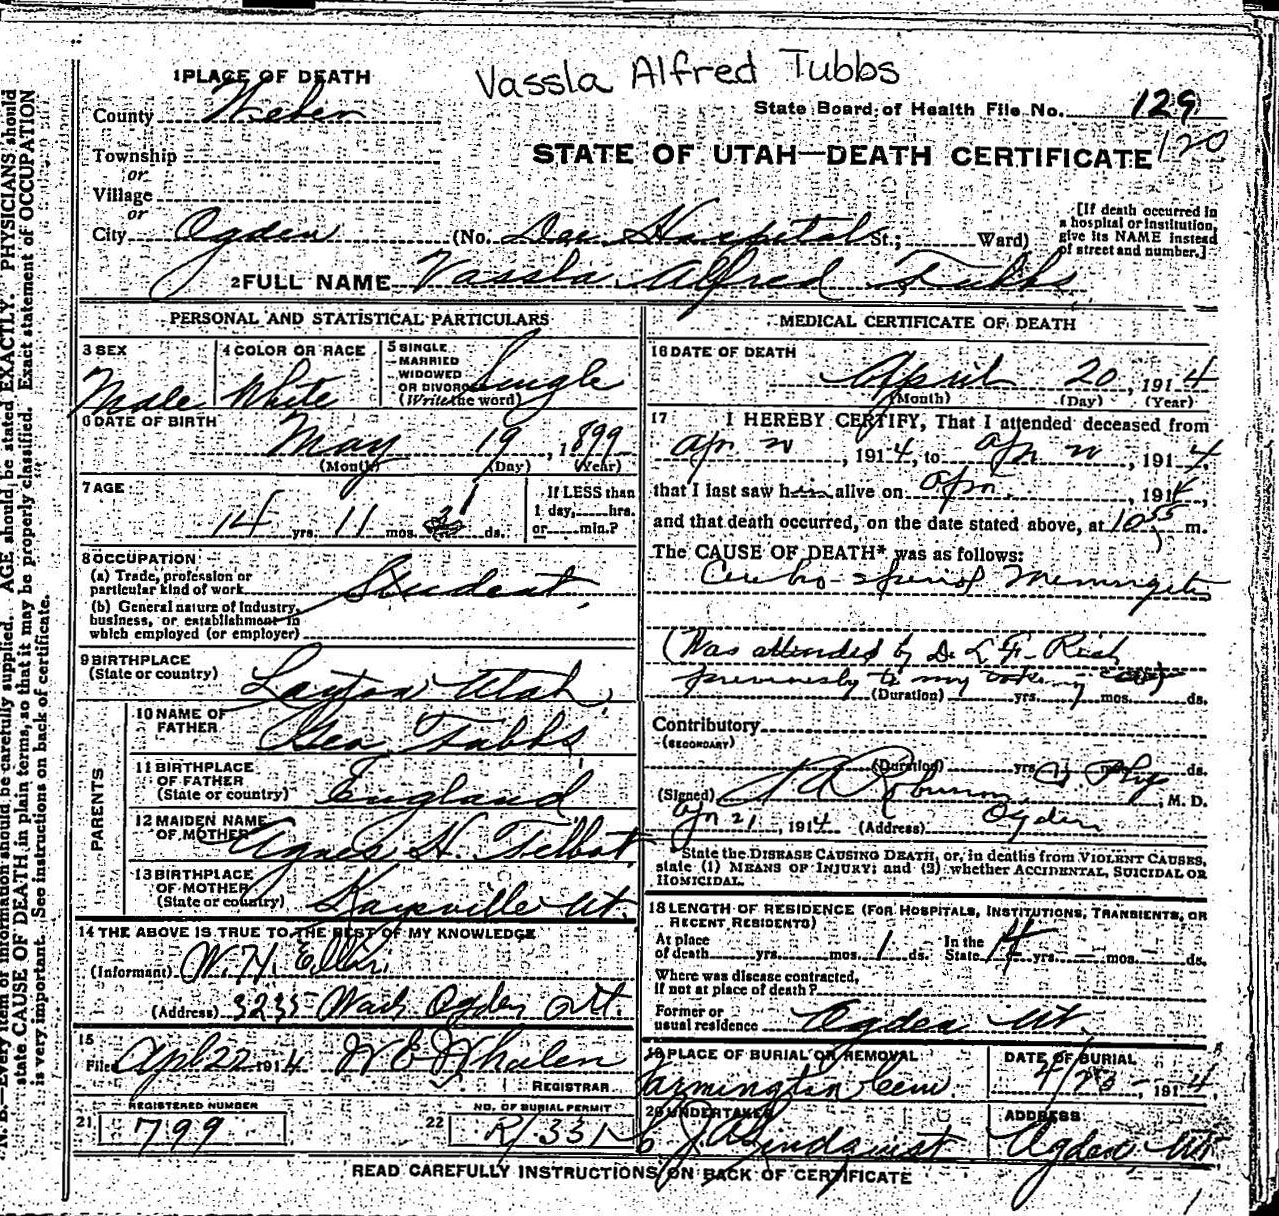 Vassla Alfred Tubbs
1 PLACE OF DEATH
County Weber
State Board of Health File No. 129
120
Township
or
Village
or
STATE OF UTAH—DEATH CERTIFICATE
City Ogden (No. Dee Hospital St.; Ward)
[If death occurred in a hospital or institution, give its NAME instead of street and number.]
2 FULL NAME Vassla Alfred Tubbs
PERSONAL AND STATISTICAL PARTICULARS
3 SEX Male
4 COLOR OR RACE White
5 SINGLE MARRIED WIDOWED OR DIVORCED (Write the word) Single
6 DATE OF BIRTH May 19, 1899
(Month) (Day) (Year)
7 AGE 14 yrs. 11 mos. 1 ds.
If LESS than 1 day, hrs. or min.?
8 OCCUPATION
(a) Trade, profession or particular kind of work Student
(b) General nature of industry, business, or establishment in which employed (or employer)
9 BIRTHPLACE
(State or country) Layton Utah
PARENTS
10 NAME OF FATHER Geo Tubbs
11 BIRTHPLACE OF FATHER
(State or country) England
12 MAIDEN NAME OF MOTHER Agnes H. Talbot
13 BIRTHPLACE OF MOTHER
(State or country) Kaysville Ut.
14 THE ABOVE IS TRUE TO THE BEST OF MY KNOWLEDGE
(Informant) W. H. Ellis
(Address) 3235 Wash Ogden Ut.
15
Filed Apl 22 1914 W E Whalen
REGISTRAR
REGISTERED NUMBER
21 799
NO. OF BURIAL PERMIT
22 R/331
MEDICAL CERTIFICATE OF DEATH
16 DATE OF DEATH
April 20, 1914
(Month) (Day) (Year)
17 I HEREBY CERTIFY, That I attended deceased from
Apr 20, 1914, to Apr 20, 1914,
that I last saw him alive on Apr., 1914,
and that death occurred, on the date stated above, at 10 55 m.
The CAUSE OF DEATH* was as follows:
Cerebro-spinal Meningitis
(Was attended by Dr L. F. Rich
previously to my taking case)
(Duration) yrs. mos. ds.
Contributory
(SECONDARY)
(Duration) yrs. mos. ds.
(Signed) Robinson, M. D.
Apr 21, 1914 (Address) Ogden
State the DISEASE CAUSING DEATH, or, in deaths from VIOLENT CAUSES, state (1) MEANS OF INJURY; and (2) whether ACCIDENTAL, SUICIDAL OR HOMICIDAL.
18 LENGTH OF RESIDENCE (FOR HOSPITALS, INSTITUTIONS, TRANSIENTS, OR RECENT RESIDENTS)
At place of death yrs. mos. 1 ds. In the State 14 yrs. – mos. – ds.
Where was disease contracted, if not at place of death?
Former or usual residence Ogden Ut.
19 PLACE OF BURIAL OR REMOVAL
Farmington Cem
DATE OF BURIAL
4/23 – 1914
20 UNDERTAKER
J A Lindquist
ADDRESS
Ogden Ut
READ CAREFULLY INSTRUCTIONS ON BACK OF CERTIFICATE
N. B.—Every item of information should be carefully supplied. AGE should be stated EXACTLY. PHYSICIANS should
state CAUSE OF DEATH in plain terms, so that it may be properly classified. Exact statement of OCCUPATION
is very important. See instructions on back of certificate.